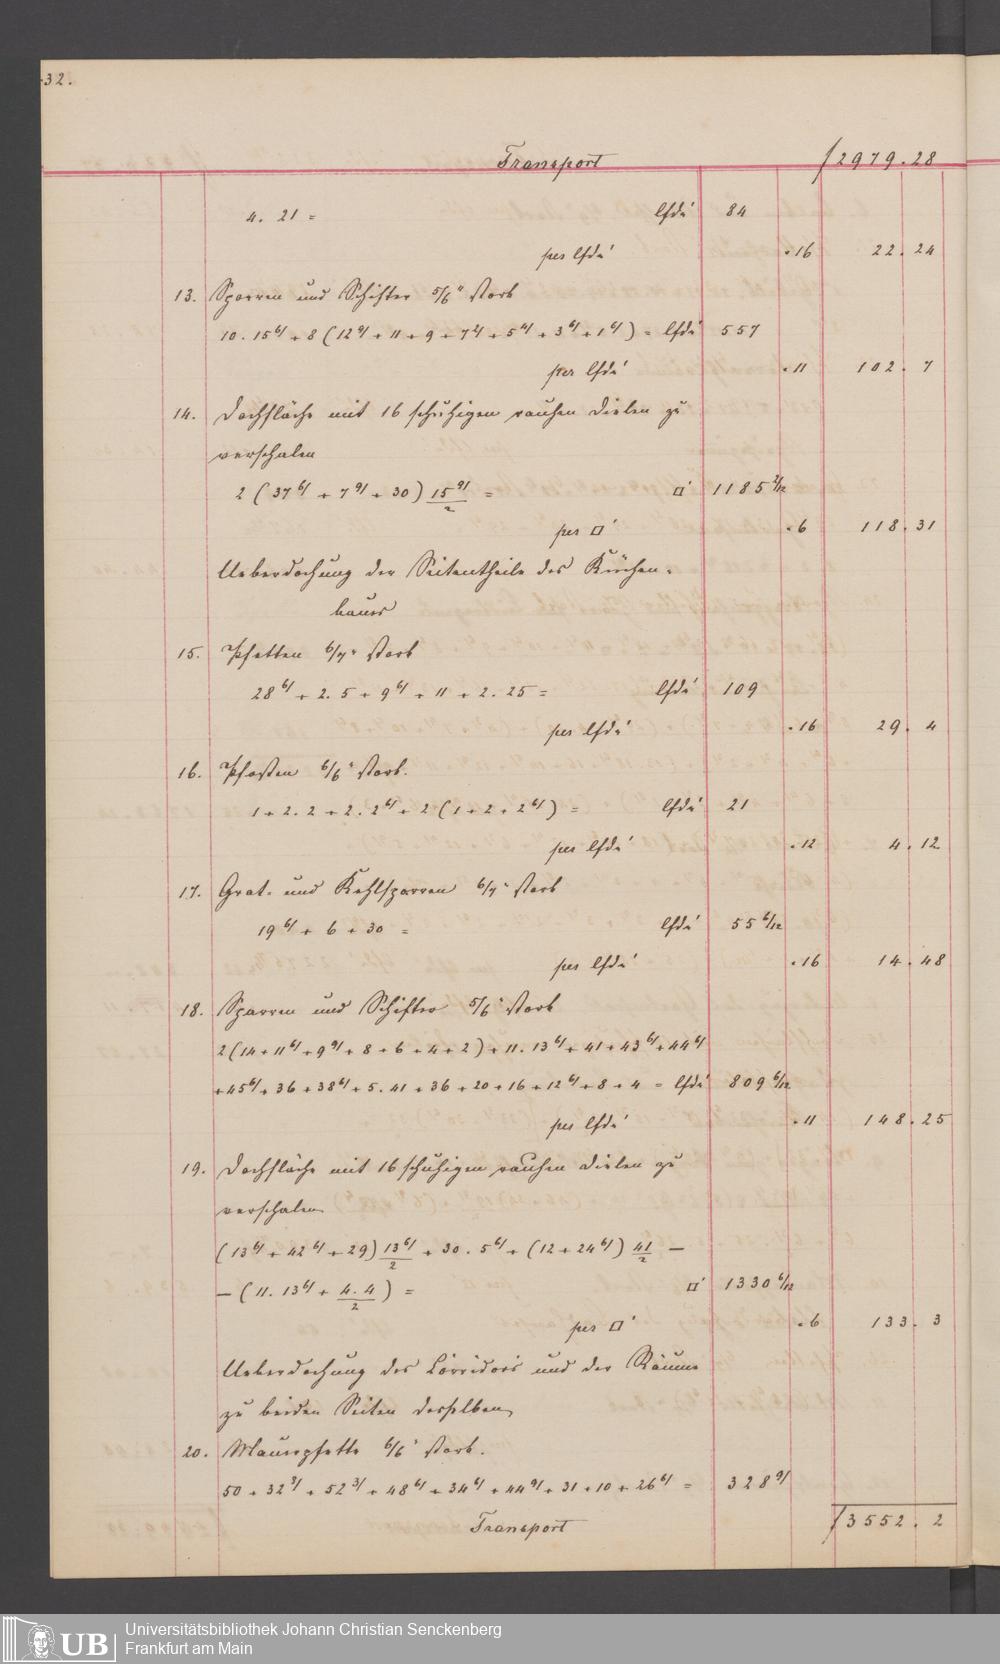 32.
Transport f 2979. 28
4. 21 = lfd' 84
per lfd' .16 22. 24
13. Sparren und Schifter 5/6" stark
10. 15 6/ + 8 (12 9/ + 11 + 9 + 7 4/ + 5 4/ + 3 6/ + 1 6/) = lfd' 557
per lfd' .11 102. 7
14. Dachfläche mit 16 schuhigen rauhen Dielen zu
verschalen
2 (37 6/ + 7 9/ + 30) 15 9/ / 2 = □' 1185 2/12
per □' .6 118. 31
Ueberdachung der Seitentheile des Küchen-
baues
15. Pfetten 6/7" stark
28 6/ + 2. 5 + 9 6/ + 11 + 2. 25 = lfd' 109
per lfd' .16 29. 4
16. Pfosten 6/6" stark.
1 + 2. 2 + 2. 2 6/ + 2 (1 + 2 + 2 6/) = lfd' 21
per lfd' .12 4. 12
17. Grat- und Kehlsparren 6/7" stark
19 6/ + 6 + 30 = lfd' 55 6/12
per lfd' .16 14. 48
18. Sparren und Schifter 5/6" stark
2 (14 + 11 6/ + 9 9/ + 8 + 6 + 4 + 2) + 11. 13 6/ + 41 + 43 6/ + 44 6/
+ 45 6/ + 36 + 38 6/ + 5. 41 + 36 + 20 + 16 + 12 6/ + 8 + 4 = lfd' 809 6/12
per lfd' .11 148. 25
19. Dachfläche mit 16 schuhigen rauhen Dielen zu
verschalen
(13 6/ + 42 6/ + 29) 13 6/ / 2 + 30. 5 6/ + (12 + 24 6/) 41/2 —
— (11. 13 6/ + 4. 4 / 2) = □' 1330 6/12
per □' .6 133. 3
Ueberdachung des Corridors und der Räume
zu beiden Seiten desselben
20. Mauerpfette 6/6" stark.
50 + 32 3/ + 52 3/ + 48 6/ + 34 6/ + 44 9/ + 31 + 10 + 26 6/ = 328 9/
Transport f 3552. 2
UB
Universitätsbibliothek Johann Christian Senckenberg
Frankfurt am Main